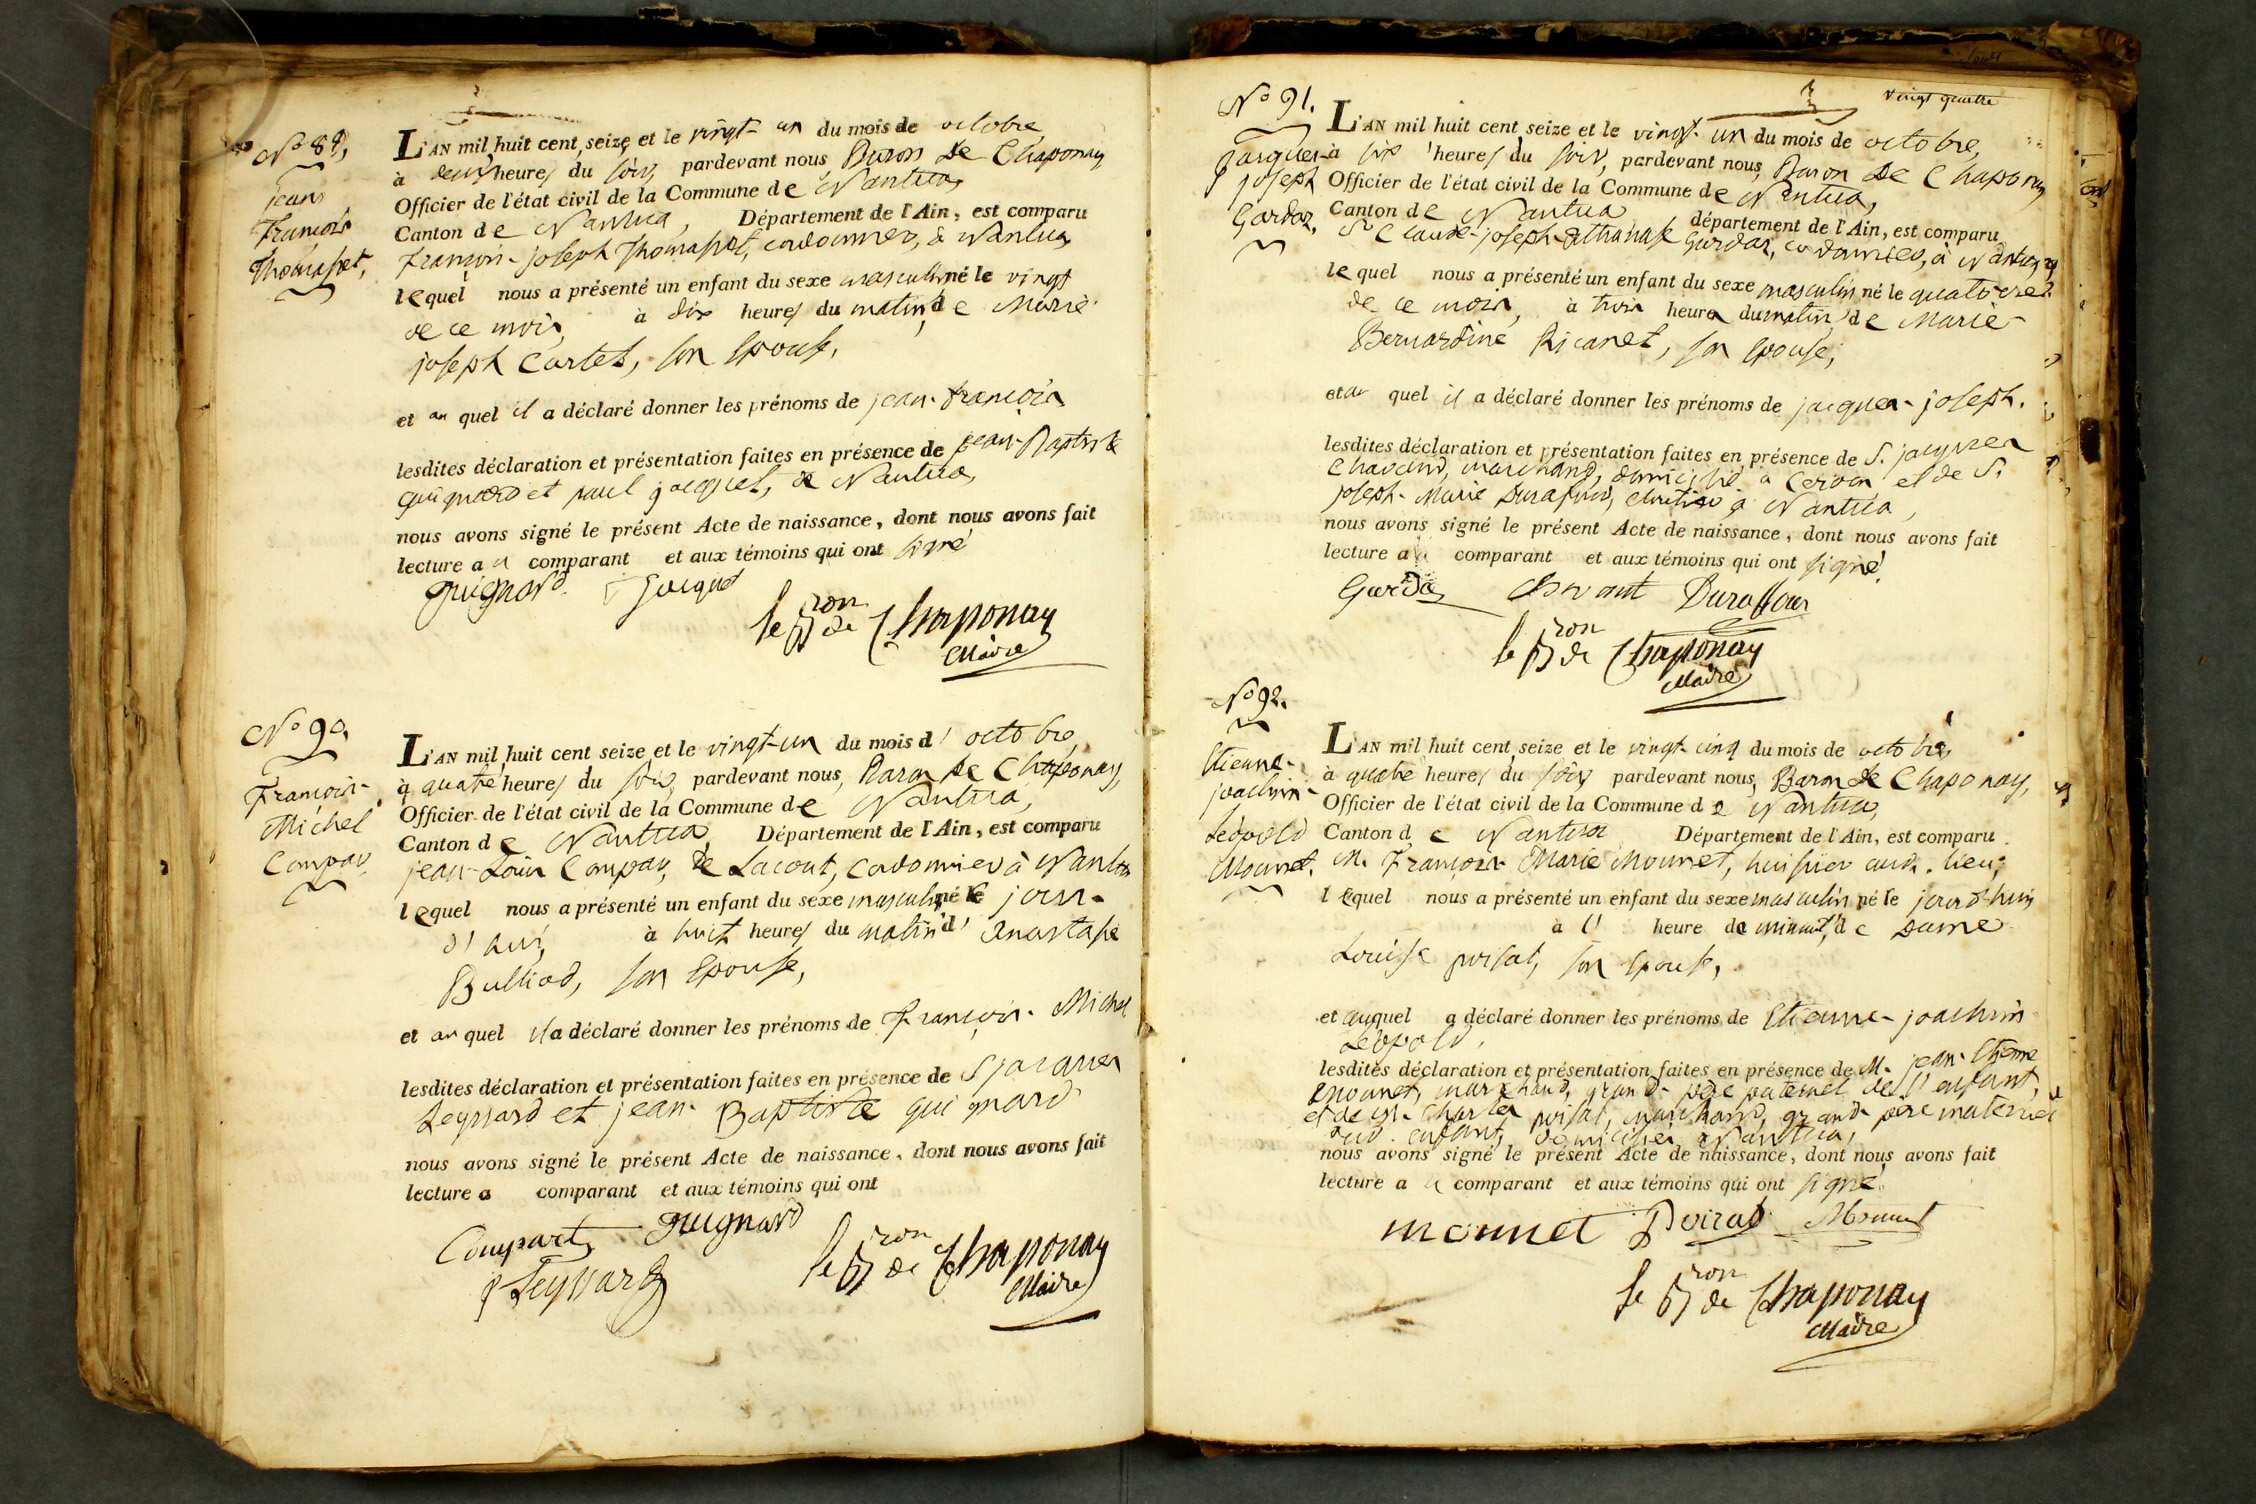 N.° 89,
jean
François
Thomasset,
L'AN mil huit cent seize et le vingt-un du mois de octobre,
à deux heures du soir, pardevant nous Baron de Chaponay
Officier de l'état civil de la Commune de Nantua,
Canton de Nantua, Département de l'Ain, est comparu
François-joseph Thomasset, cordonnier, à Nantua
lequel nous a présenté un enfant du sexe masculin né le vingt
de ce mois, à dix heures du matin, de Marie
joseph Cartet, son Epouse,
et au quel il a déclaré donner les prénoms de jean-françois
lesdites déclaration et présentation faites en présence de jean-Baptiste
guignard et paul jacquet, de Nantua,
nous avons signé le présent Acte de naissance, dont nous avons fait
lecture au comparant et aux témoins qui ont signé
guignard jacquet
le Bron de Chaponay
Maire
N.° 90,
François-
Michel
Compar,
L'AN mil huit cent seize et le vingt-un du mois d'octobre,
à quatre heures du soir, pardevant nous, Baron de Chaponay,
Officier de l'état civil de la Commune de Nantua,
Canton de Nantua, Département de l'Ain, est comparu
jean-Louis Compar, de Lacout, cordonnier à Nantua
lequel nous a présenté un enfant du sexe masculin né le jour-
d'hui, à huit heures du matin d'anastasie
Bulliod, son Epouse,
et au quel il a déclaré donner les prénoms de François-Michel
lesdites déclaration et présentation faites en présence de S jacques
Leyssard et jean-Baptiste guignard
nous avons signé le présent Acte de naissance, dont nous avons fait
lecture a comparant et aux témoins qui ont
Compart guignard
j Leyssard le Bron de Chaponay
Maire
vingt quatre
N° 91.
jacques-
joseph
Gardaz,
L'AN mil huit cent seize et le vingt-un du mois de octobre,
à six heures du soir, pardevant nous, Baron de Chaponay
Officier de l'état civil de la Commune de Nantua,
Canton de Nantua département de l'Ain, est comparu
S.r Claude-joseph-Athanase Gardaz, cordonnier, à Nantua,
lequel nous a présenté un enfant du sexe masculin né le quatorze
de ce mois, à trois heures du matin, de Marie-
Bernardine Ricanet, son Epouse,
et au quel il a déclaré donner les prénoms de jacques-joseph.
lesdites déclaration et présentation faites en présence de S. jacques
Chavand, marchand, domicilié à Cerdon et de S.
joseph-Marie Durafour, à Nantua,
nous avons signé le présent Acte de naissance, dont nous avons fait
lecture au comparant et aux témoins qui ont signé.
Gardaz Duraffour
le Bron de Chaponay
Maire
N° 92.
Etienne-
joachim-
Léopold
Mounet.
L'AN mil huit cent seize et le vingt-cinq du mois de octobre,
à quatre heures du soir, pardevant nous, Baron de Chaponay,
Officier de l'état civil de la Commune de Nantua,
Canton de Nantua Département de l'Ain, est comparu
M. François-Marie Mounet, huissier aud. lieu;
lequel nous a présenté un enfant du sexe masculin né le jourd'hui
à l' heure de minuit, de Dame
Louise poisat, son Epouse,
et auquel a déclaré donner les prénoms de Etienne-joachim
Léopold,
lesdites déclaration et présentation faites en présence de M. jean-Etienne
Mounet, marchand, grand-père paternel de l'enfant,
et de M. Charles poisat, marchand, grand père maternel
dud. enfant, domiciliés à Nantua,
nous avons signé le présent Acte de naissance, dont nous avons fait
lecture au comparant et aux témoins qui ont signé.
mounet Poizat Mounet
le Bron de Chaponay
Maire